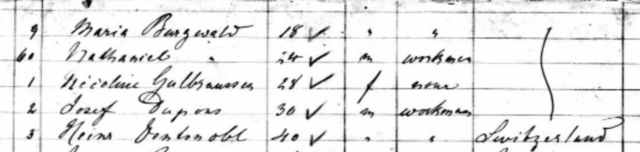 9 Maria Burgwald 18 ✓ " "
60 Nathaniel " 24 ✓ m workman
1 28 ✓ f none
2 Josef Dupons 30 ✓ m workman
3 Heinr 40 ✓ " " Switzerland